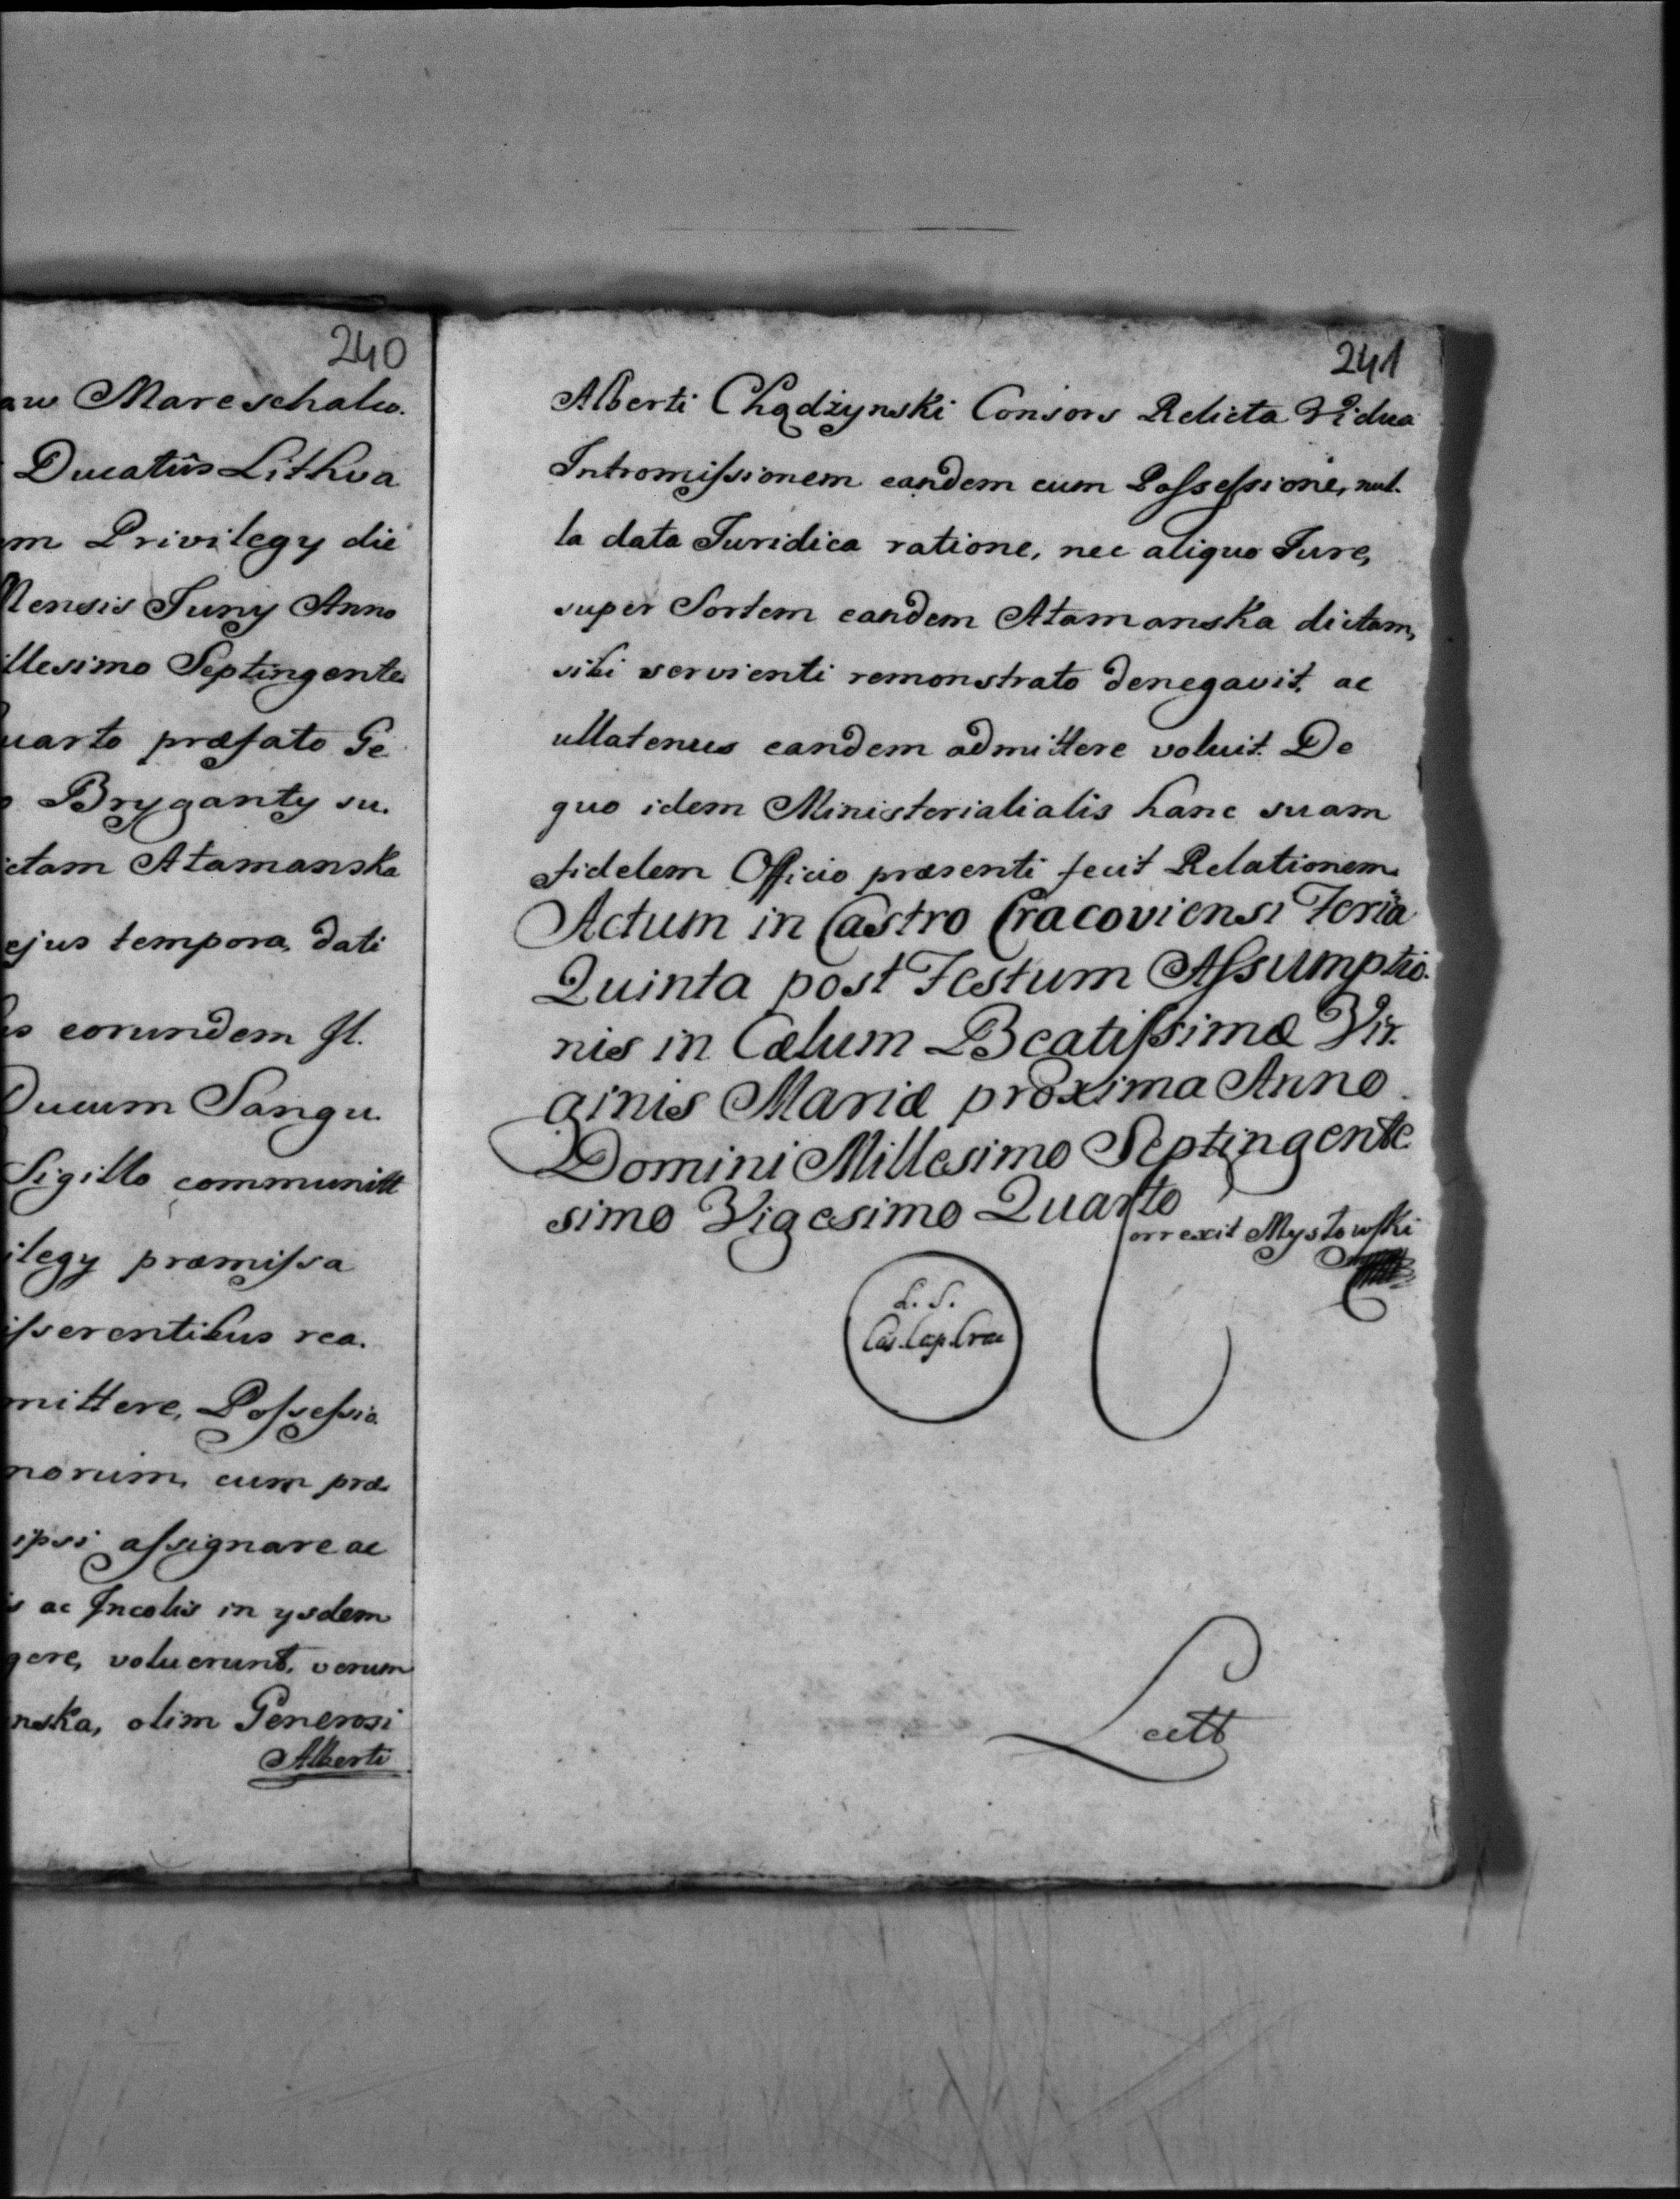 240
Mareschalco.
Ducatûs Lithva
Privilegy die
Mensis Juny Anno
illesimo Septingente.
uarto præfato Ge
Bryganty su.
ctam Atamanska
ejus tempora, dati
eorundem Il.
Ducum Sangu.
Sigillo communitt
ilegy præmissa
isserentibus rea.
mittere, Possessio.
norum, cum præ
ipsi assignare ac
s ac Incolis in ysdem
gere, voluerunt, verum
nska, olim Generosi
Alberti
241
Alberti Chądżynski Consors Relicta Vidua
Intromissionem eandem cum Possessione, nul.
la data Juridica ratione, nec aliquo Jure,
super Sortem eandem Atamanska dictam,
sibi servienti remonstrato denegavit, ac
ullatenus eandem admittere voluit. De
quo idem Ministerialialis hanc suam
fidelem Officio præsenti fecit Relationem.
Actum in Castro Cracoviensi Feria
Quinta post Festum Assumptio.
nis in Cælum Beatissimæ Vir.
ginis Mariæ proxima Anno
Domini Millesimo Septingente
simo Vigesimo Quarto
Correxit Mystowski
L. S.
Cas. Cap. Crac
Lectt